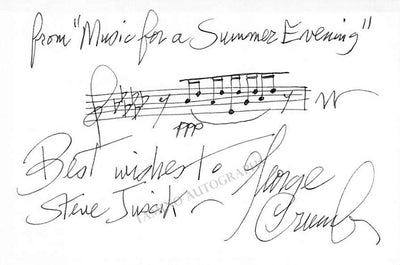 from "Music for a Summer Evening"
ppp
Best wishes to George
Steve Jusick — Crumb
TAMINO AUTOGRAPHS